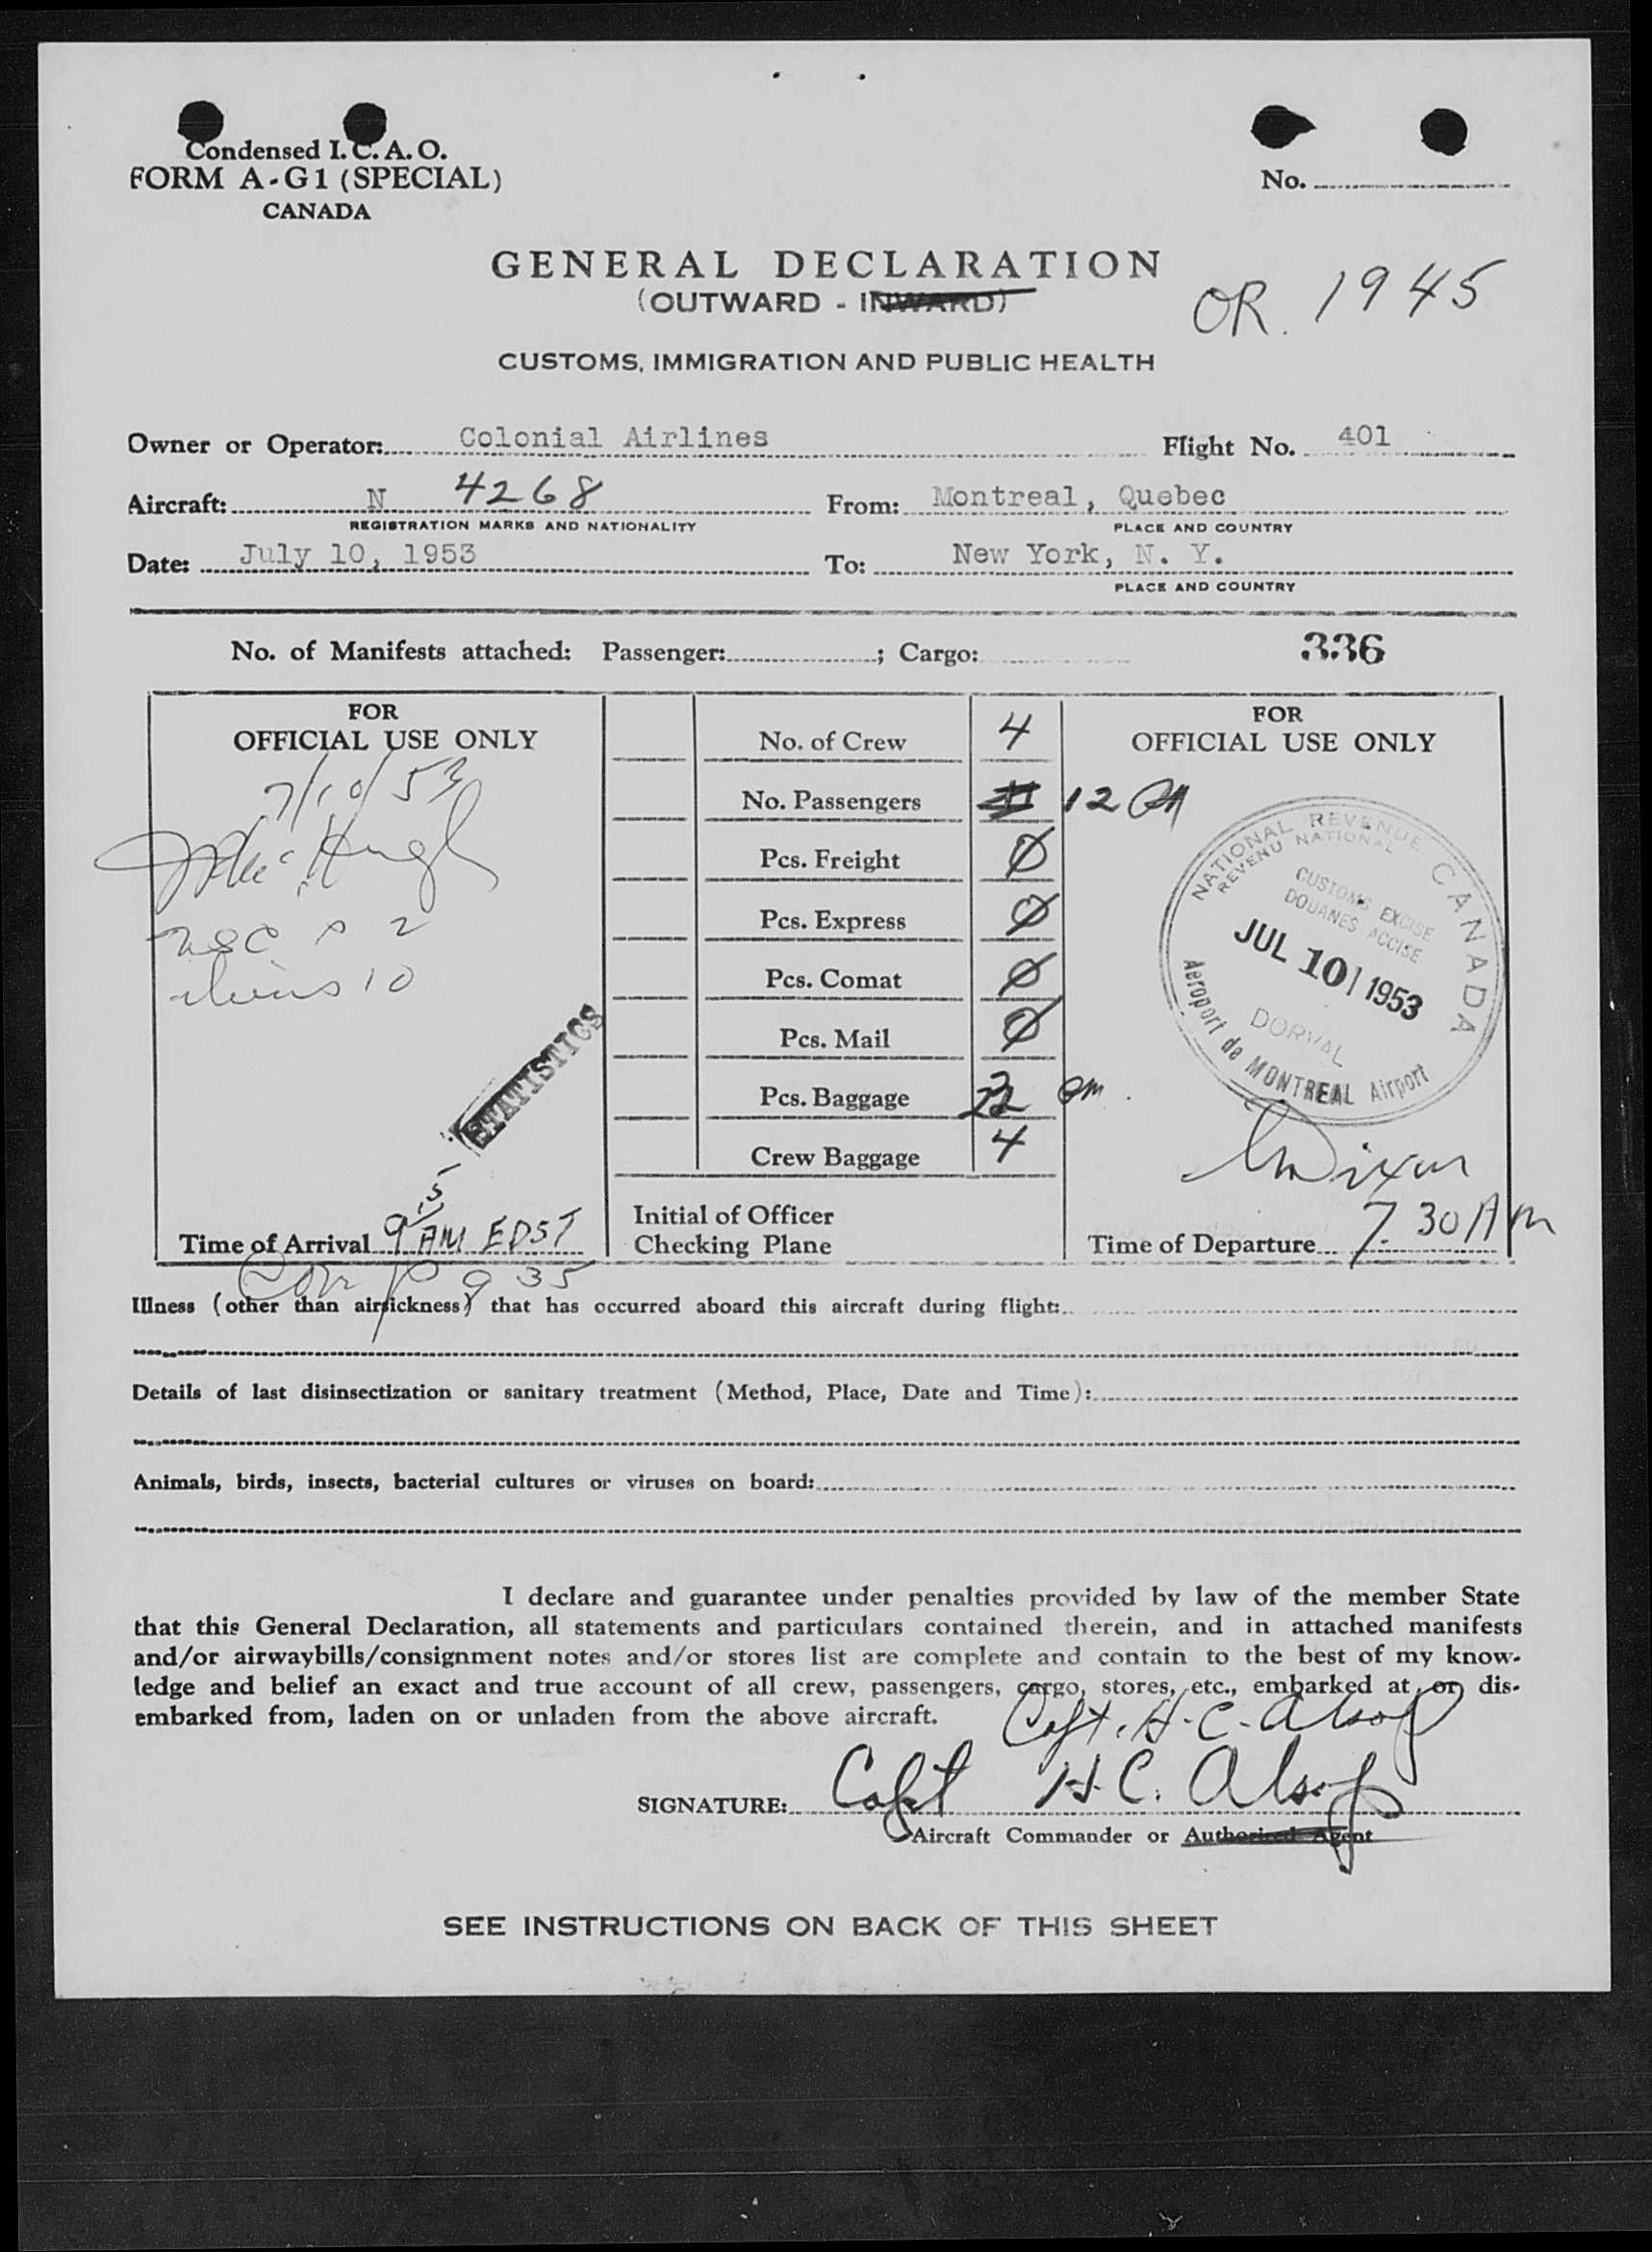 Condensed I.C.A.O.
FORM A-G1 (SPECIAL)
CANADA
No.
GENERAL DECLARATION
(OUTWARD - INWARD)
OR. 1945
CUSTOMS, IMMIGRATION AND PUBLIC HEALTH
Owner or Operator: Colonial Airlines Flight No. 401
Aircraft: N 4268 From: Montreal, Quebec
REGISTRATION MARKS AND NATIONALITY PLACE AND COUNTRY
Date: July 10, 1953 To: New York, N. Y.
PLACE AND COUNTRY
No. of Manifests attached: Passenger: ; Cargo: 336
FOR
OFFICIAL USE ONLY
7/10/53
McHugh
usc 2
aliens 10
STATISTICS
Time of Arrival 9 15 AM EDST
9 35
No. of Crew 4
No. Passengers 12
Pcs. Freight Ø
Pcs. Express Ø
Pcs. Comat Ø
Pcs. Mail Ø
Pcs. Baggage 22
Crew Baggage 4
Initial of Officer
Checking Plane
FOR
OFFICIAL USE ONLY
NATIONAL REVENUE CANADA
REVENU NATIONAL
CUSTOMS EXCISE
DOUANES ACCISE
JUL 10 1953
DORVAL
Aeroport de MONTREAL Airport
Dixon
Time of Departure 7.30 AM
Illness (other than airsickness) that has occurred aboard this aircraft during flight:
Details of last disinsectization or sanitary treatment (Method, Place, Date and Time):
Animals, birds, insects, bacterial cultures or viruses on board:
I declare and guarantee under penalties provided by law of the member State
that this General Declaration, all statements and particulars contained therein, and in attached manifests
and/or airwaybills/consignment notes and/or stores list are complete and contain to the best of my know-
ledge and belief an exact and true account of all crew, passengers, cargo, stores, etc., embarked at or dis-
embarked from, laden on or unladen from the above aircraft.
Capt. H.C. Alsop
SIGNATURE: Capt H.C. Alsop
Aircraft Commander or Authorized Agent
SEE INSTRUCTIONS ON BACK OF THIS SHEET